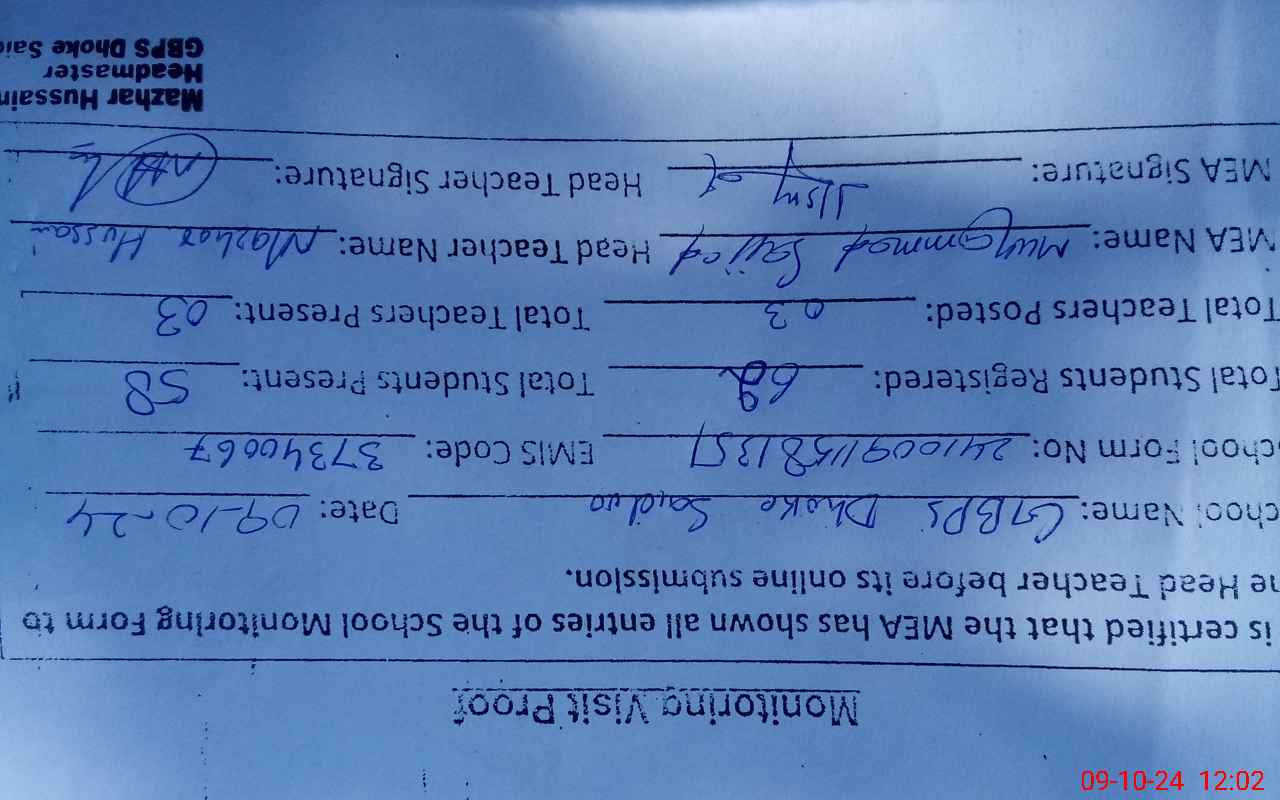 Monitoring Visit Proof
is certified that the MEA has shown all entries of the School Monitoring Form to
he Head Teacher before its online submission.
chool Name: GBPS Dhoke Saidwo Date: 09-10-24
chool Form No: EMIS Code: 37340067
Total Students Registered: 62 Total Students Present: 58
Total Teachers Posted: 03 Total Teachers Present: 03
MEA Name: Muhammad Sajjad Head Teacher Name: Mazhar Hussai
MEA Signature: Head Teacher Signature:
Mazhar Hussain
Headmaster
GBPS Dhoke Said
09-10-24 12:02